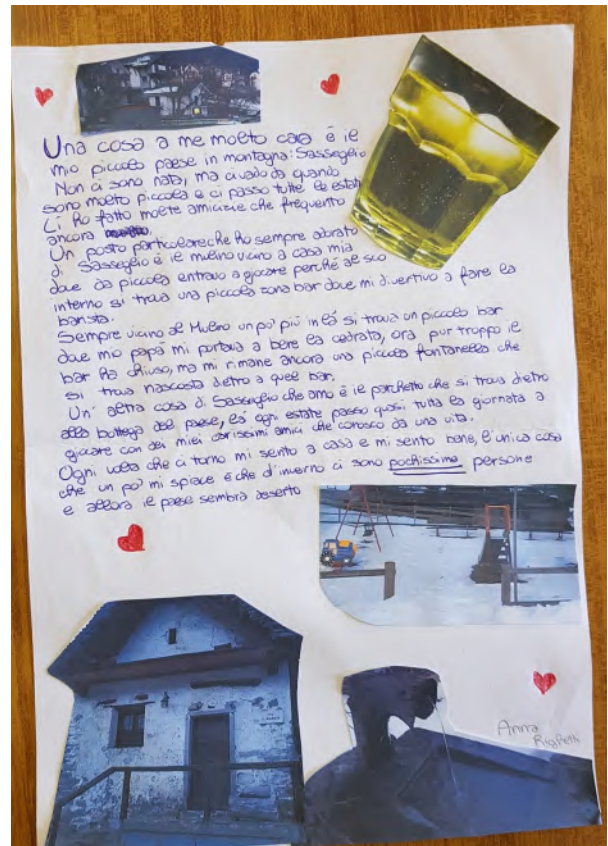 Una cosa a me molto cara è il
mio piccolo paese in montagna: Sasseglio
Non ci sono nata, ma ci vado da quando
sono molto piccola e ci passo tutte le estati
Lì ho fatto molte amicizie che frequento
ancora
Un posto particolare che ho sempre adorato
di Sasseglio è il mulino vicino a casa mia
dove da piccola entravo a giocare perchè al suo
interno si trova una piccola zona bar dove mi divertivo a fare la
barista.
Sempre vicino al Mulino un po' più in là si trova un piccolo bar
dove mio papà mi portava a bere la cedrata, ora pur troppo il
bar ha chiuso, ma mi rimane ancora una piccola fontanella che
si trova nascosta dietro a quel bar.
Un' altra cosa di Sasseglio che amo è il parchetto che si trova dietro
alla bottega del paese, là ogni estate passo quasi tutta la giornata a
giocare con dei miei carissimi amici che conosco da una vita.
Ogni volta che ci torno mi sento a casa e mi sento bene, l'unica cosa
che un po' mi spiace è che d'inverno ci sono pochissime persone
e allora il paese sembra deserto
Anna
Righetti